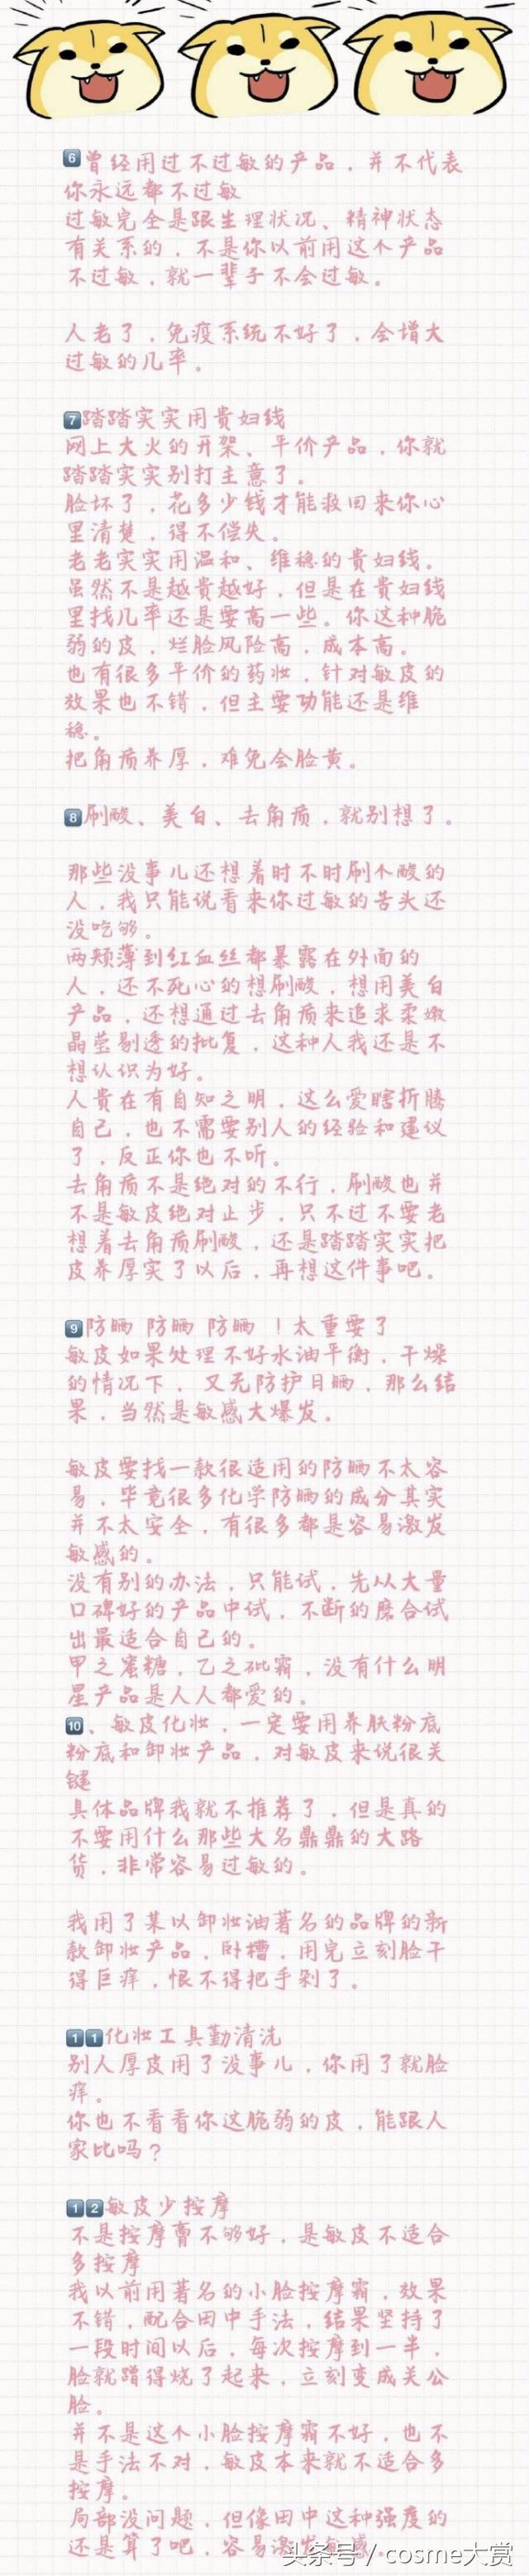 6 曾经用过不过敏的产品，并不代表
你永远都不过敏
过敏完全是跟生理状况、精神状态
有关系的，不是你以前用这个产品
不过敏，就一辈子不会过敏。
人老了，免疫系统不好了，会增大
过敏的几率。
7 踏踏实实用贵妇线
网上大火的开架、平价产品，你就
踏踏实实别打主意了。
脸坏了，花多少钱才能救回来你心
里清楚，得不偿失。
老老实实用温和、维稳的贵妇线。
虽然不是越贵越好，但是在贵妇线
里找几率还是要高一些。你这种脆
弱的皮，烂脸风险高，成本高。
也有很多平价的药妆，针对敏皮的
效果也不错，但主要功能还是维
稳。
把角质养厚，难免会脸黄。
8 刷酸、美白、去角质，就别想了。
那些没事儿还想着时不时刷个酸的
人，我只能说看来你过敏的苦头还
没吃够。
两颊薄到红血丝都暴露在外面的
人，还不死心的想刷酸，想用美白
产品，还想通过去角质来追求柔嫩
晶莹剔透的批复，这种人我还是不
想认识为好。
人贵在有自知之明，这么爱瞎折腾
自己，也不需要别人的经验和建议
了，反正你也不听。
去角质不是绝对的不行，刷酸也并
不是敏皮绝对止步，只不过不要老
想着去角质刷酸，还是踏踏实实把
皮养厚实了以后，再想这件事吧。
9 防晒 防晒 防晒 ！太重要了
敏皮如果处理不好水油平衡，干燥
的情况下，又无防护日晒，那么结
果，当然是敏感大爆发。
敏皮要找一款很适用的防晒不太容
易，毕竟很多化学防晒的成分其实
并不太安全，有很多都是容易激发
敏感的。
没有别的办法，只能试，先从大量
口碑好的产品中试，不断的磨合试
出最适合自己的。
甲之蜜糖，乙之砒霜，没有什么明
星产品是人人都爱的。
10、敏皮化妆，一定要用养肤粉底
粉底和卸妆产品，对敏皮来说很关
键
具体品牌我就不推荐了，但是真的
不要用什么那些大名鼎鼎的大路
货，非常容易过敏的。
我用了某以卸妆油著名的品牌的新
款卸妆产品，卧槽，用完立刻脸干
得巨痒，恨不得把手剁了。
11 化妆工具勤清洗
别人厚皮用了没事儿，你用了就脸
痒。
你也不看看你这脆弱的皮，能跟人
家比吗？
12 敏皮少按摩
不是按摩膏不够好，是敏皮不适合
多按摩
我以前用著名的小脸按摩霜，效果
不错，配合田中手法，结果坚持了
一段时间以后，每次按摩到一半，
脸就蹭得烧了起来，立刻变成关公
脸。
并不是这个小脸按摩霜不好，也不
是手法不对，敏皮本来就不适合多
按摩。
局部没问题，但像田中这种强度的
还是算了吧，容易激发敏感。
头条号 / cosme大赏